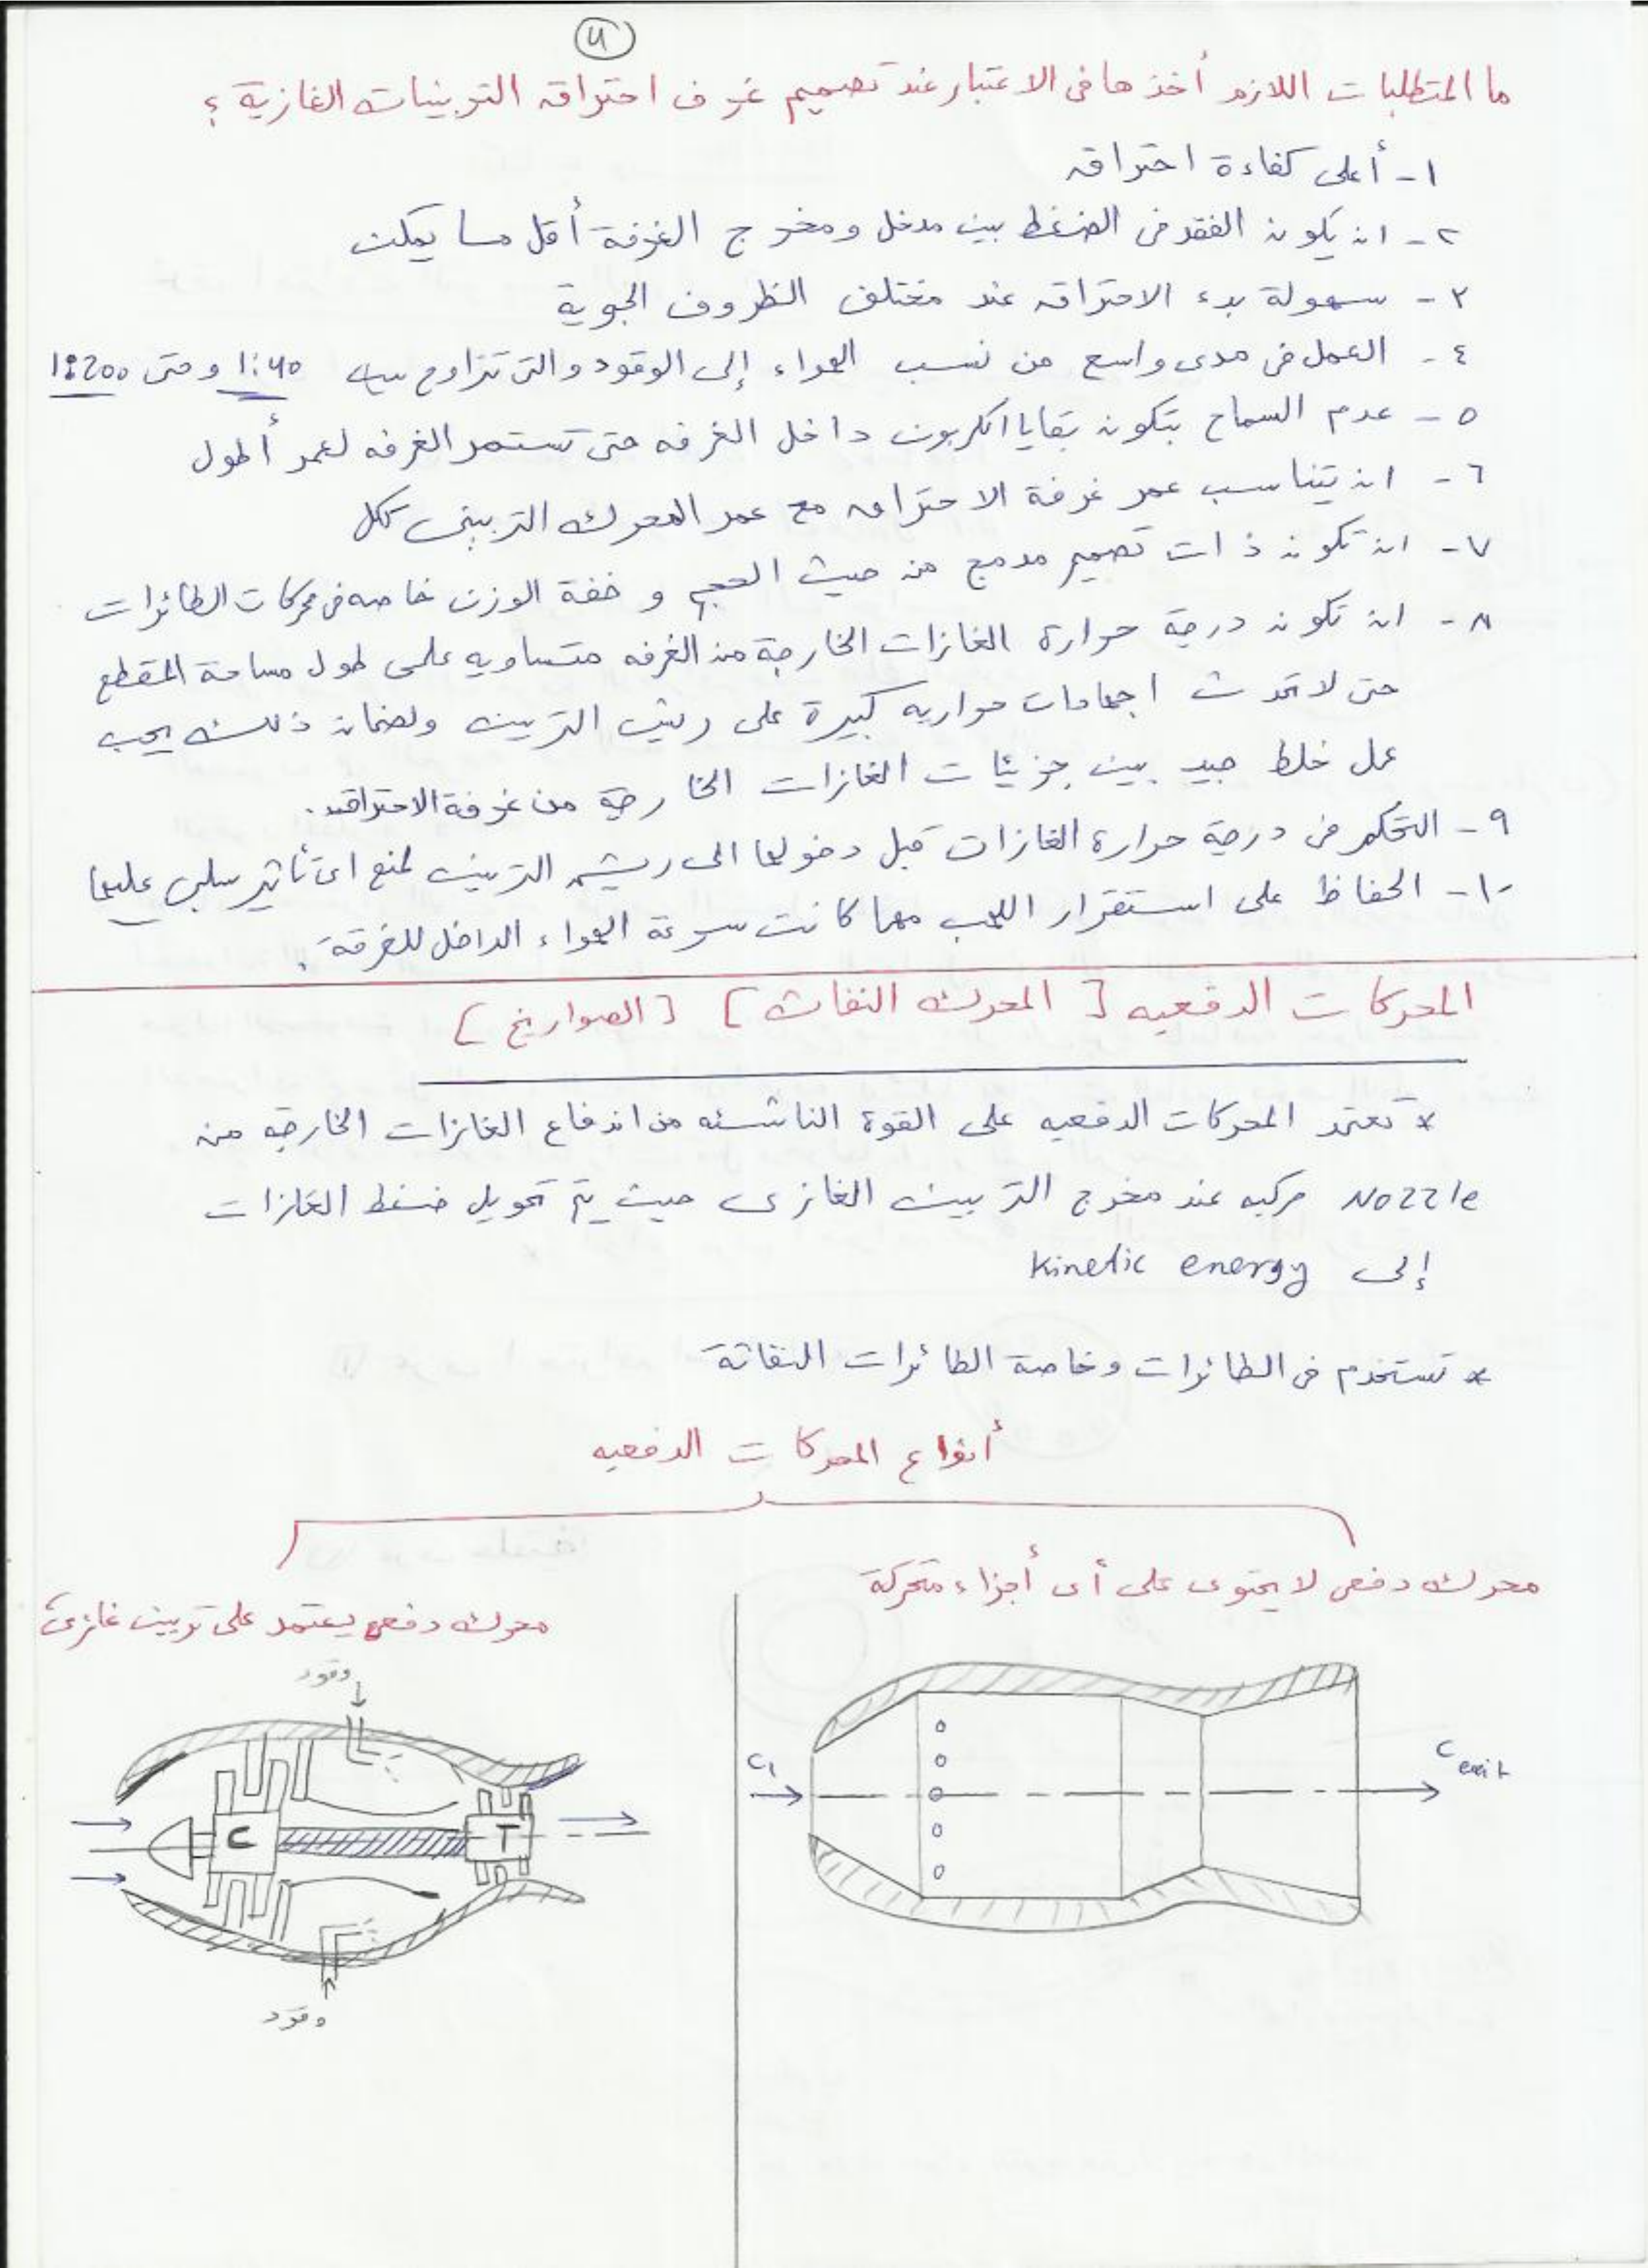 ٤
ما المتطلبات اللازم أخذها فى الاعتبار عند تصميم غرف احتراق التوربينات الغازية ؟
١ - أعلى كفاءة احتراق
٢ - ان يكون الفقد فى الضغط بين مدخل ومخرج الغرفة أقل مما يمكن
٣ - سهولة بدء الاحتراق عند مختلف الظروف الجوية
٤ - العمل فى مدى واسع من نسب الهواء إلى الوقود والتى تتراوح بين 1:40 وحتى 1:200
٥ - عدم السماح بتكون بقايا الكربون داخل الغرفه حتى تستمر الغرفه لعمر أطول
٦ - ان يتناسب عمر غرفة الاحتراق مع عمر المحرك التربينى ككل
٧ - ان تكون ذات تصميم مدمج من حيث الحجم و خفة الوزن خاصه فى محركات الطائرات
٨ - ان تكون درجة حرارة الغازات الخارجة من الغرفه متساويه على طول مساحة المقطع
حتى لا تحدث اجهادات حراريه كبيرة على ريش التربين ولضمان ذلك يجب
عمل خلط جيد بين جزيئات الغازات الخارجة من غرفة الاحتراق.
٩ - التحكم فى درجة حرارة الغازات قبل دخولها الى ريش التربين لمنع اى تأثير سلبى عليها
١٠ - الحفاظ على استقرار اللهب مهما كانت سرعة الهواء الداخل للغرفة.
المحركات الدفعيه [ المحرك النفاث ] [ الصواريخ ]
* تعتمد المحركات الدفعيه على القوة الناشئه من اندفاع الغازات الخارجه من
Nozzle مركبه عند مخرج التربين الغازى حيث يتم تحويل ضغط الغازات
إلى Kinetic energy
* تستخدم فى الطائرات وخاصة الطائرات النفاثة
أنواع المحركات الدفعيه
محرك دفعى لا يحتوى على أى أجزاء متحركة
محرك دفعى يعتمد على تربين غازى
وقود
C1
C exit
C
T
وقود